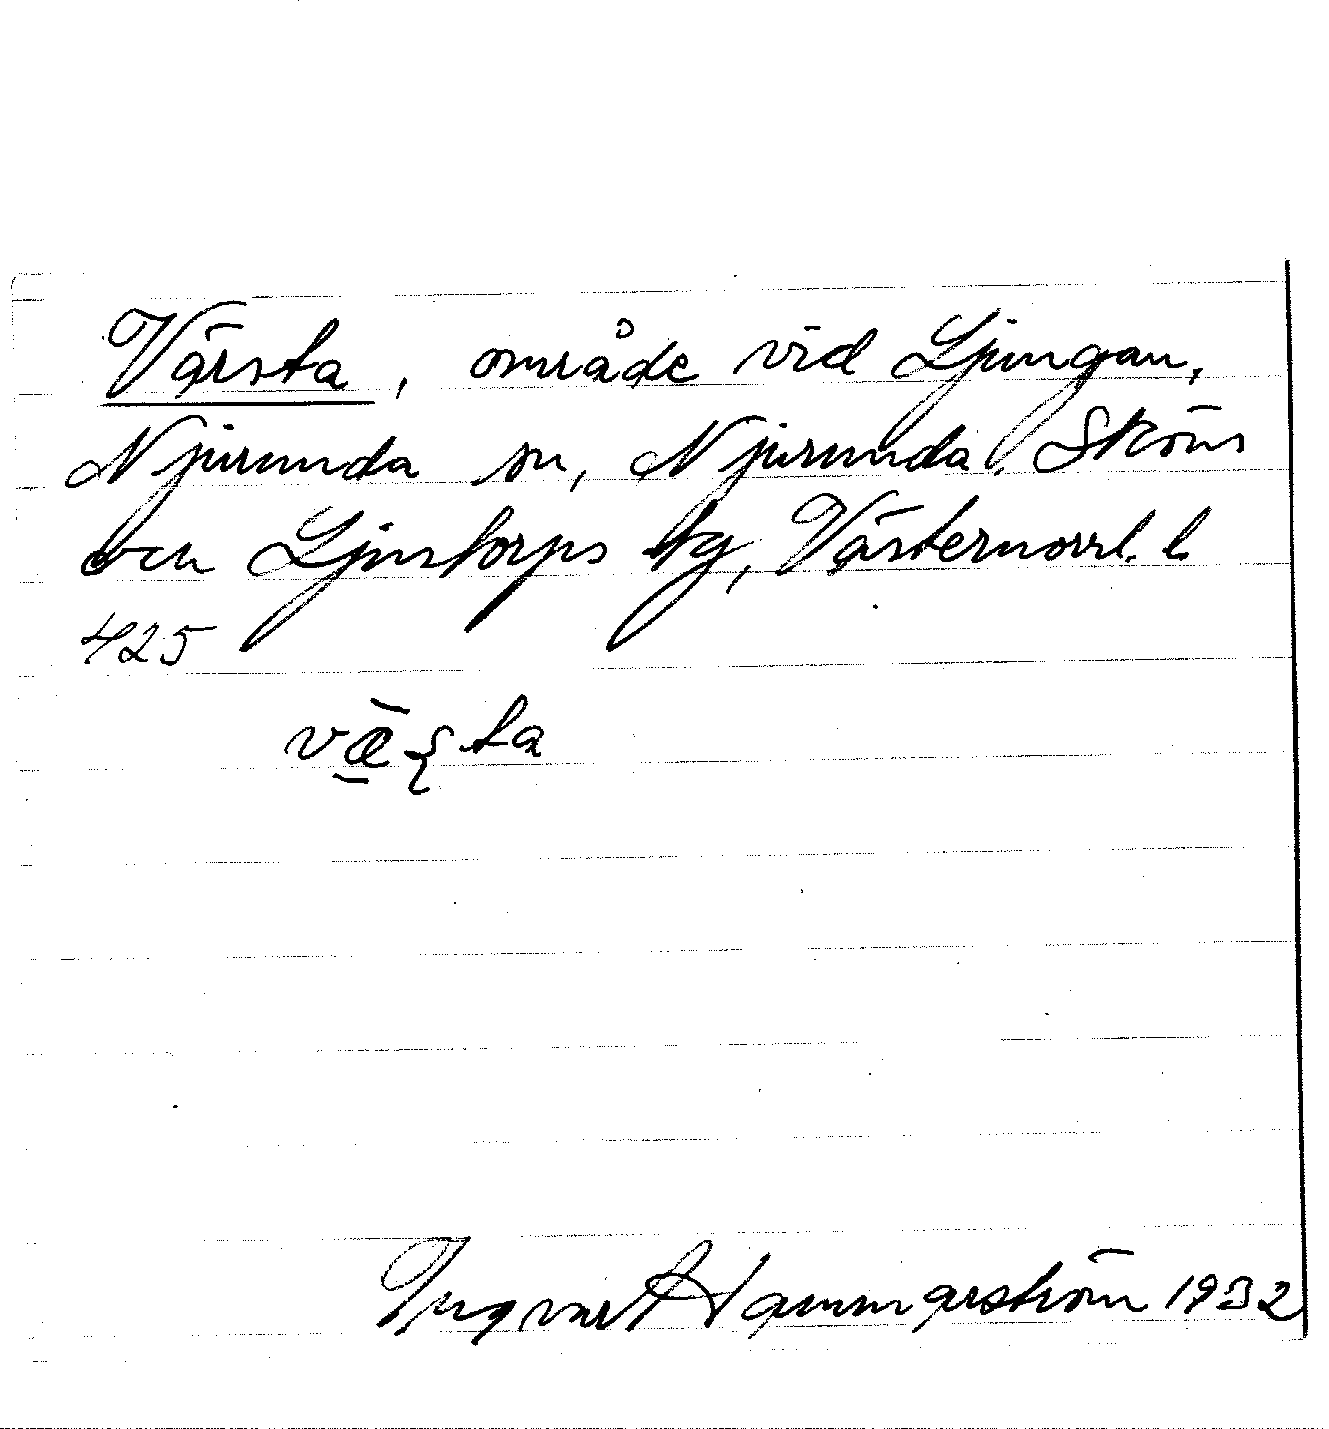 Värsta, område vid Ljungan,
Njurunda sn, Njurunda, Sköns
och Ljustorps tg, Västernorrl. l.
425
vǣ̠ʂta
Ingvar Hammarström 1932